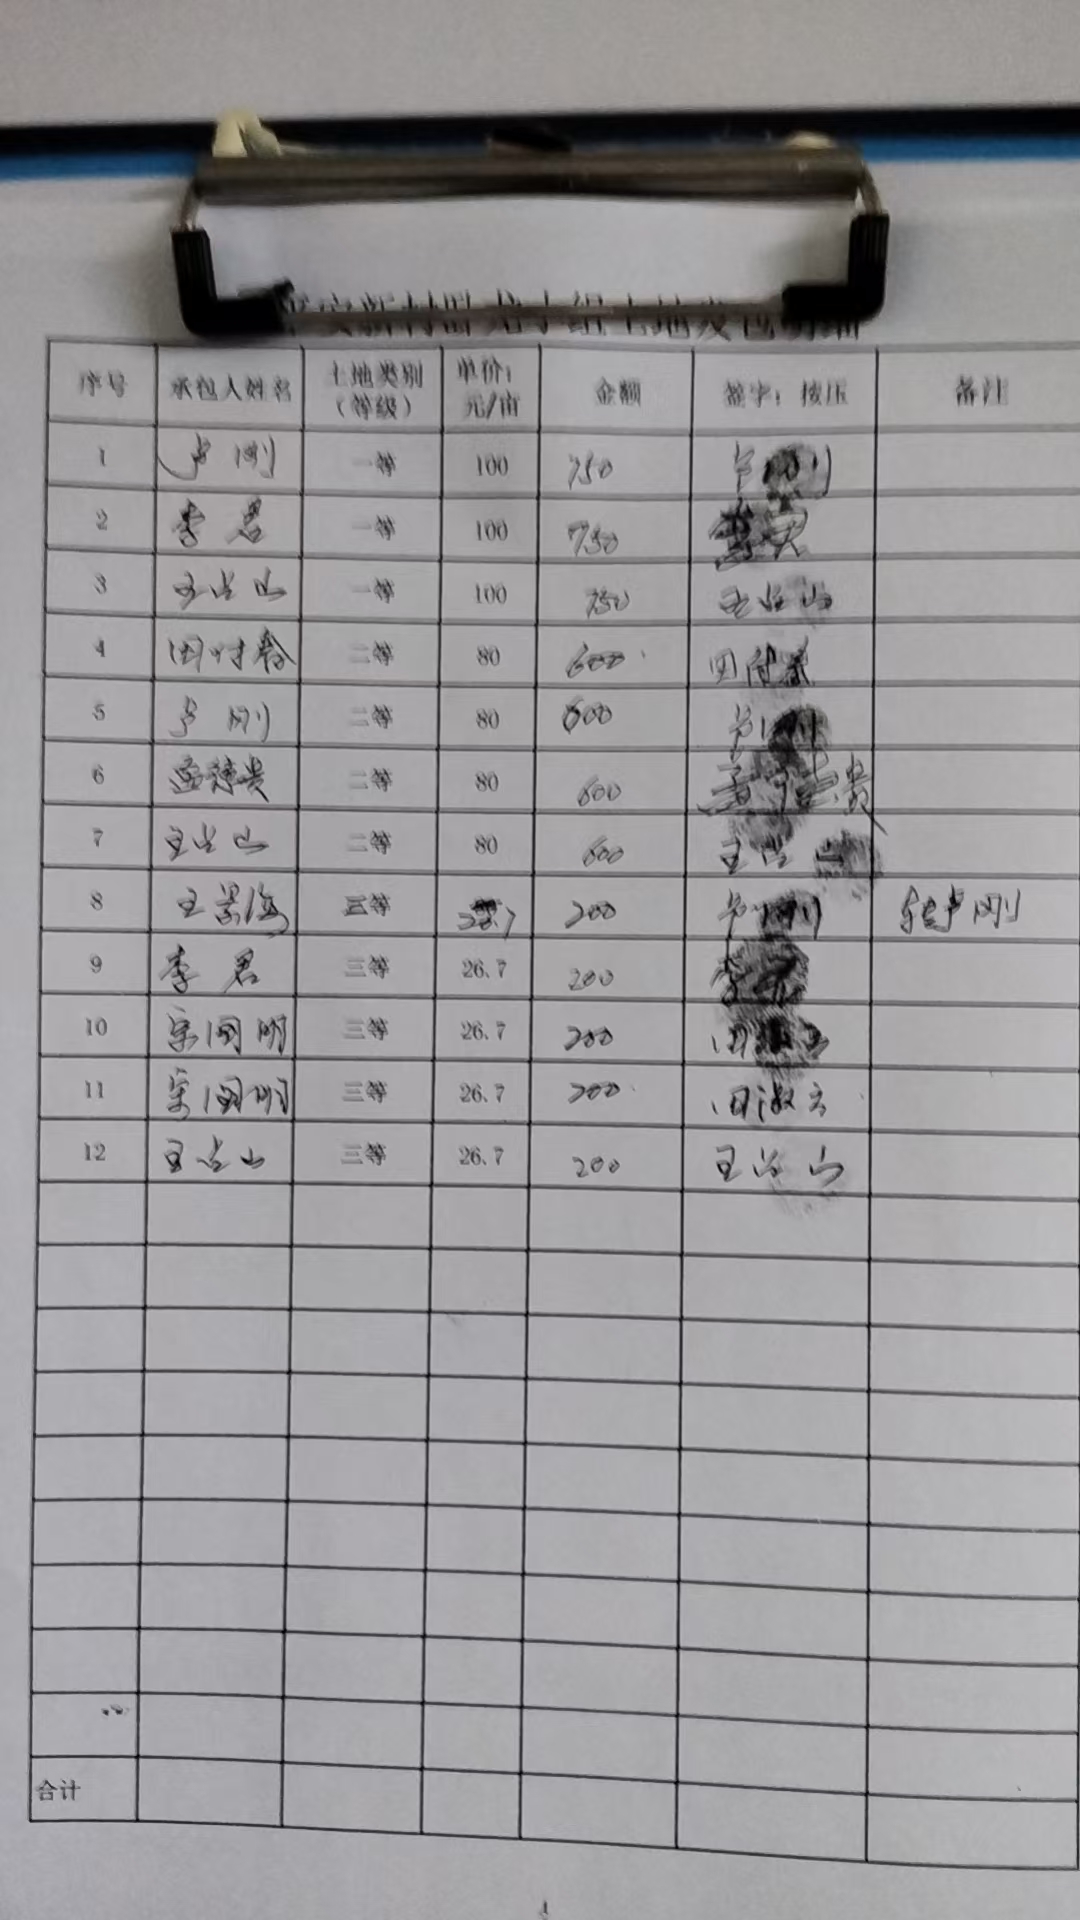 序号 承包人姓名 土地类别（等级） 单价：元/亩 金额 签字：按压 备注
1 卢刚 一等 100 750 卢刚
2 李君 一等 100 750
3 王占山 一等 100 750 王占山
4 二等 80 600
5 卢刚 二等 80 600 卢刚
6 孟德贵 二等 80 600 孟德贵
7 王占山 二等 80 600 王占山
8 王景海 三等 200 卢刚 转卢刚
9 李君 三等 26.7 200 李君
10 宋国明 三等 26.7 200
11 宋国明 三等 26.7 200 田淑云
12 王占山 三等 26.7 200 王占山
合计